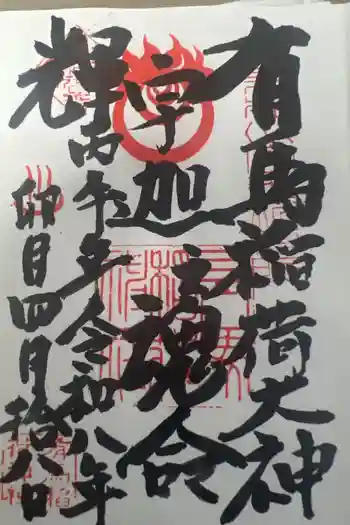 有馬稲荷大神
宇加之魂命
輝
丙午年令和八年
卯月四月拾八日